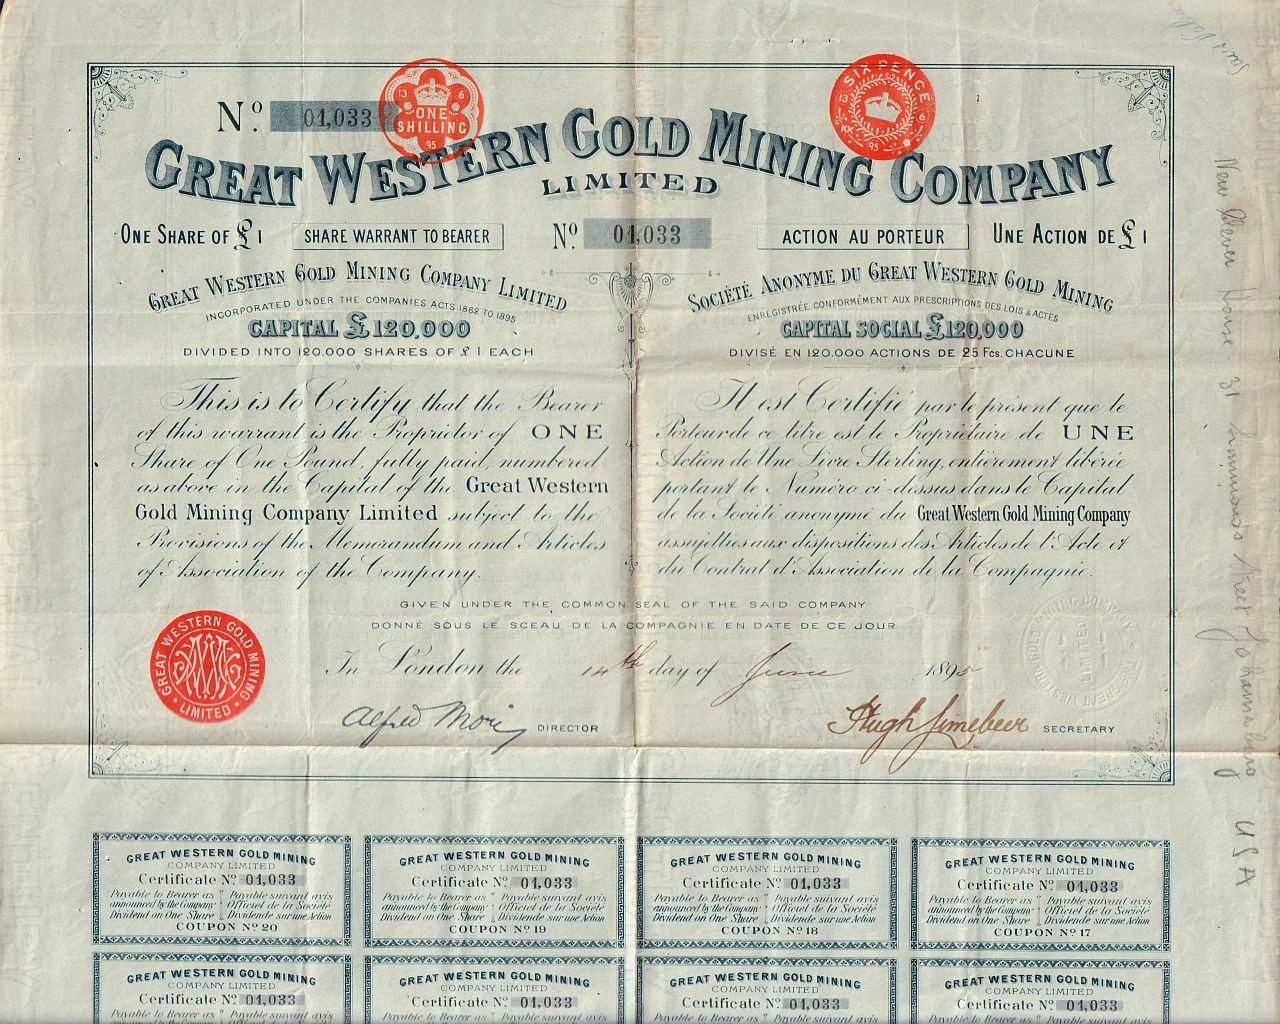 No. 01,033
13 6 ONE SHILLING 95
SIX PENCE 13 6 KK 95
GREAT WESTERN GOLD MINING COMPANY
LIMITED
ONE SHARE OF £1
SHARE WARRANT TO BEARER
No 01,033
ACTION AU PORTEUR
UNE ACTION DE £1
GREAT WESTERN GOLD MINING COMPANY LIMITED
INCORPORATED UNDER THE COMPANIES ACTS 1862 TO 1895
CAPITAL £120,000
DIVIDED INTO 120.000 SHARES OF £1 EACH
This is to Certify that the Bearer
of this warrant is the Proprietor of ONE
Share of One Pound, fully paid, numbered
as above in the Capital of the Great Western
Gold Mining Company Limited subject to the
Provisions of the Memorandum and Articles
of Association of the Company.
SOCIÉTÉ ANONYME DU GREAT WESTERN GOLD MINING
ENREGISTRÉE CONFORMÉMENT AUX PRESCRIPTIONS DES LOIS & ACTES
CAPITAL SOCIAL £120,000
DIVISÉ EN 120.000 ACTIONS DE 25 Fcs. CHACUNE
Il est Certifié par le présent que le
Porteur de ce titre est le Propriétaire de UNE
Action de Une Livre Sterling, entièrement libérée
portant le Numéro ci-dessus dans le Capital
de la Société anonyme du Great Western Gold Mining Company
assujetties aux dispositions des Articles de l'Acte et
du Contrat d'Association de la Compagnie.
GIVEN UNDER THE COMMON SEAL OF THE SAID COMPANY
DONNÉ SOUS LE SCEAU DE LA COMPAGNIE EN DATE DE CE JOUR
In London the 14th day of June 1895
GREAT WESTERN GOLD MINING LIMITED
GREAT WESTERN GOLD MINING COMPANY LIMITED
Alfred DIRECTOR
Hugh SECRETARY
New house 31 street Johannesburg
USA
GREAT WESTERN GOLD MINING
COMPANY LIMITED
Certificate No. 01,033
Payable to Bearer as Payable suivant avis
announced by the Company Officiel de la Société
Dividend on One Share Dividende sur une Action
COUPON No 20
GREAT WESTERN GOLD MINING
COMPANY LIMITED
Certificate No. 01,033
Payable to Bearer as Payable suivant avis
announced by the Company Officiel de la Société
Dividend on One Share Dividende sur une Action
COUPON No 19
GREAT WESTERN GOLD MINING
COMPANY LIMITED
Certificate No. 01,033
Payable to Bearer as Payable suivant avis
announced by the Company Officiel de la Société
Dividend on One Share Dividende sur une Action
COUPON No 18
GREAT WESTERN GOLD MINING
COMPANY LIMITED
Certificate No. 01,033
Payable to Bearer as Payable suivant avis
announced by the Company Officiel de la Société
Dividend on One Share Dividende sur une Action
COUPON No 17
GREAT WESTERN GOLD MINING
COMPANY LIMITED
Certificate No. 01,033
Payable to Bearer as Payable suivant avis
GREAT WESTERN GOLD MINING
COMPANY LIMITED
Certificate No. 01,033
Payable to Bearer as Payable suivant avis
GREAT WESTERN GOLD MINING
COMPANY LIMITED
Certificate No. 01,033
Payable to Bearer as Payable suivant avis
GREAT WESTERN GOLD MINING
COMPANY LIMITED
Certificate No. 01,033
Payable to Bearer as Payable suivant avis